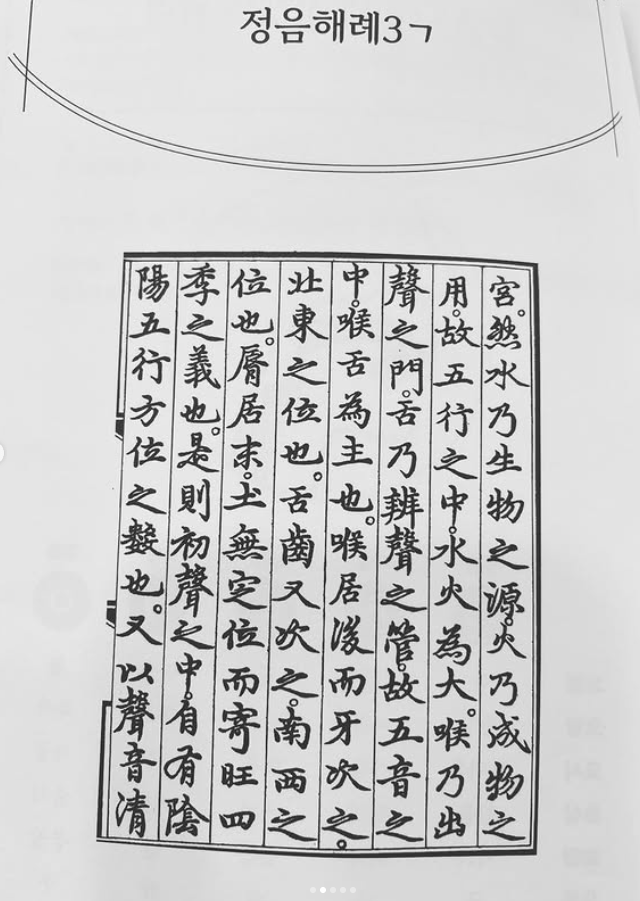 정음해례3ㄱ
宮。然水乃生物之源。火乃成物之
用。故五行之中。水火為大。喉乃出
聲之門。舌乃辨聲之管。故五音之
中。喉舌為主也。喉居後而牙次之。
北東之位也。舌齒又次之。南西之
位也。脣居末。土無定位而寄旺四
季之義也。是則初聲之中。自有陰
陽五行方位之數也。又以聲音清